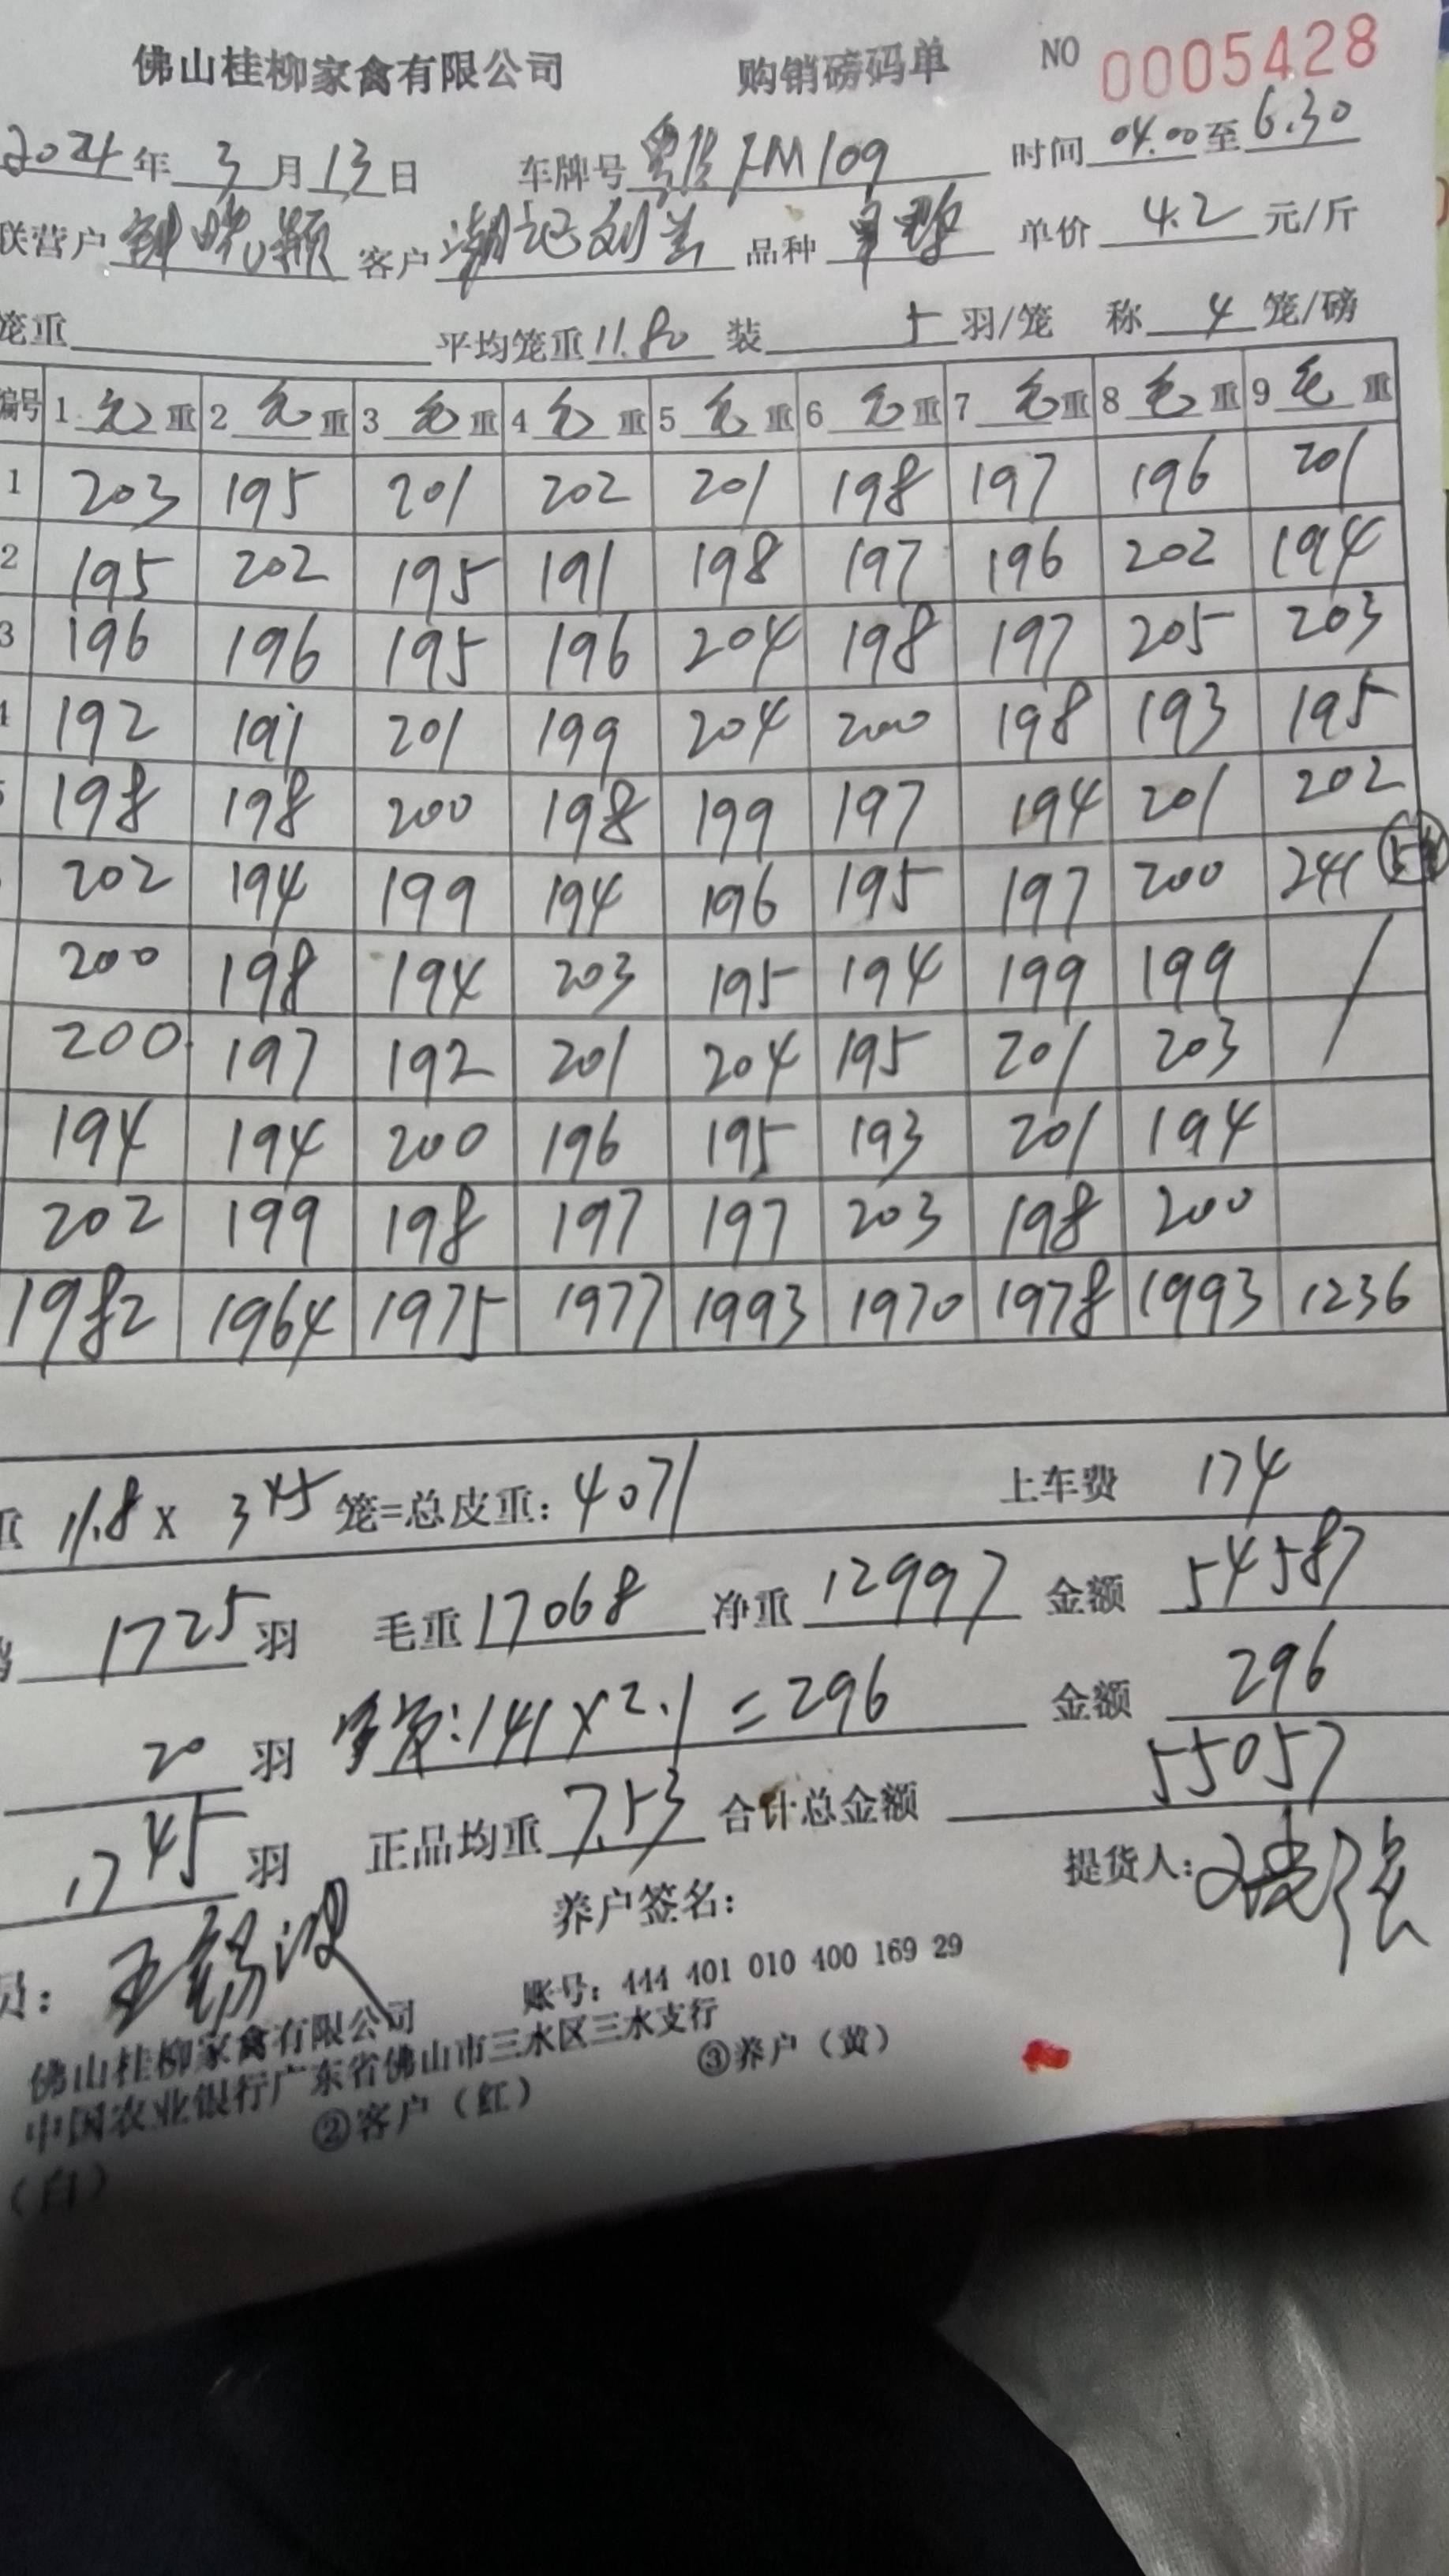 佛山桂柳家禽有限公司 购销磅码单 NO 0005428
2024年 3月13日 车牌号 JM109 时间 04.00至6.30
联营户 钟晓颖 客户 潮记 品种 单价 4.2 元/斤
笼重 平均笼重11.80 装 5 羽/笼 称 4 笼/磅
编号 1 毛 重 2 毛 重 3 毛 重 4 毛 重 5 毛 重 6 毛 重 7 毛 重 8 毛 重 9 毛 重
1 203 195 201 202 201 198 197 196 201
2 195 202 195 191 198 197 196 202 194
3 196 196 195 196 204 198 197 205 203
4 192 191 201 199 204 200 198 193 195
5 198 198 200 198 199 197 194 201 202
202 194 199 194 196 195 197 200 241
200 198 194 203 195 194 199 199
200 197 192 201 204 195 201 203
194 194 200 196 195 193 201 194
202 199 198 197 197 203 198 200
1982 1964 1975 1977 1993 1970 1978 1993 1236
重 11.8 x 345 笼=总皮重: 4071 上车费 174
1725 羽 毛重 17068 净重 12997 金额 54587
20 羽 :141×2.1=296 金额 296
1745 羽 正品均重 7.53 合计总金额 55057
员: 养户签名: 提货人:
佛山桂柳家禽有限公司 账号: 444 401 010 400 169 29
中国农业银行广东省佛山市三水区三水支行
(白) ②客户(红) ③养户(黄)